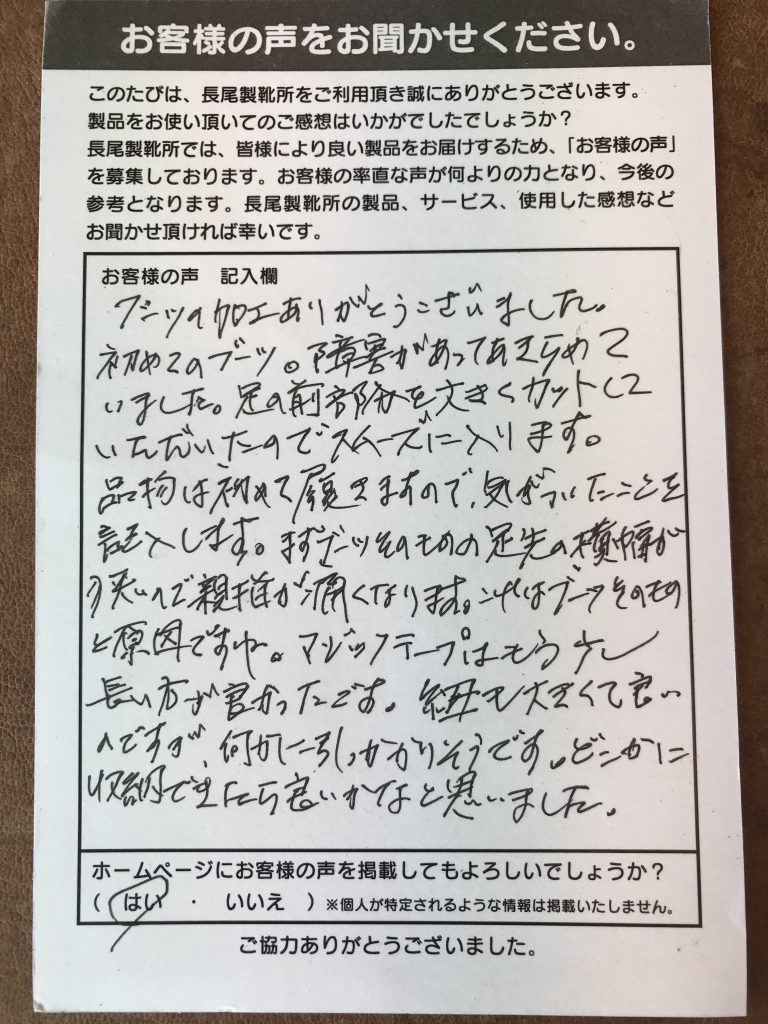 お客様の声をお聞かせください。
このたびは、長尾製靴所をご利用頂き誠にありがとうございます。
製品をお使い頂いてのご感想はいかがでしたでしょうか?
長尾製靴所では、皆様により良い製品をお届けするため、「お客様の声」
を募集しております。お客様の率直な声が何よりの力となり、今後の
参考となります。長尾製靴所の製品、サービス、使用した感想など
お聞かせ頂ければ幸いです。
お客様の声 記入欄
ブーツの加工ありがとうございました。
初めてのブーツ。障害があってあきらめて
いました。足の前部分を大きくカットして
いただいたのでスムーズに入ります。
品物は初めて履きますので、気がついたことを
記入します。まずブーツそのものの足先の横幅が
狭いので親指が痛くなります。これはブーツそのもの
の原因ですね。マジックテープはもう少し
長い方が良かったです。紐も大きくて良い
のですが、何かに引っかかりそうです。どこかに
収納できたら良いかなと思いました。
ホームページにお客様の声を掲載してもよろしいでしょうか?
( はい ・ いいえ ) ※個人が特定されるような情報は掲載いたしません。
ご協力ありがとうございました。